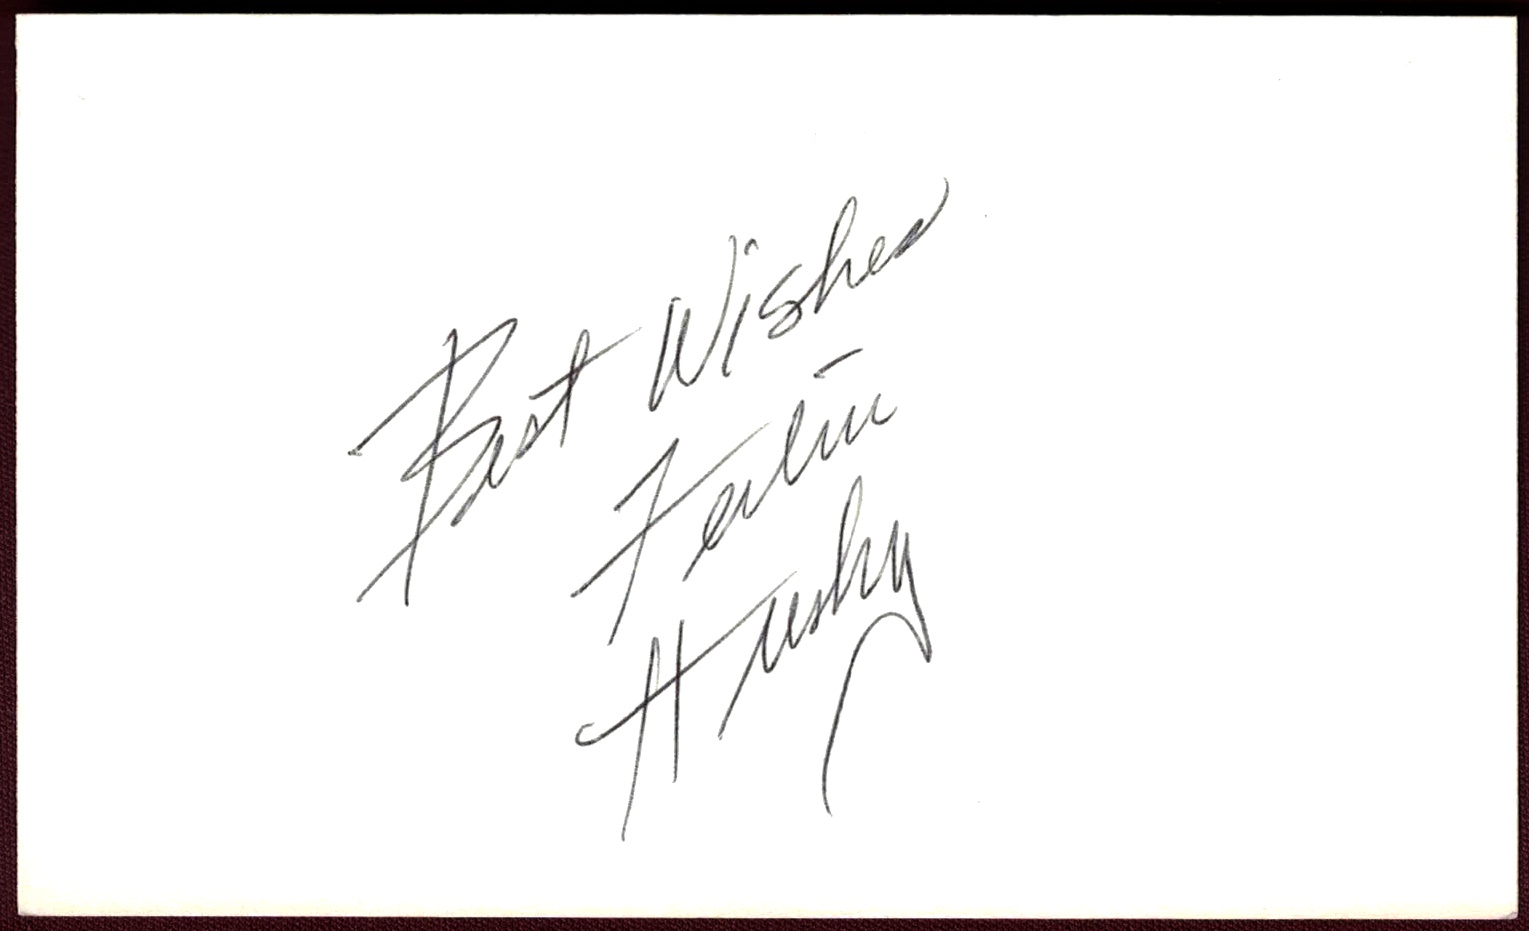 Best Wishes
Ferlin
Husky